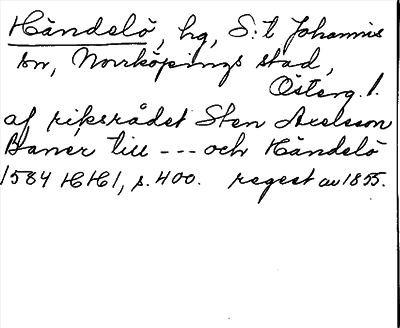 Händelö, hg, S:t Johannis
sn, Norrköpings stad,
Österg. l.
af riksrådet Sten Axelsson
Baner till --- och Händelö
1584 HH1, s. 400. regest av 1855.